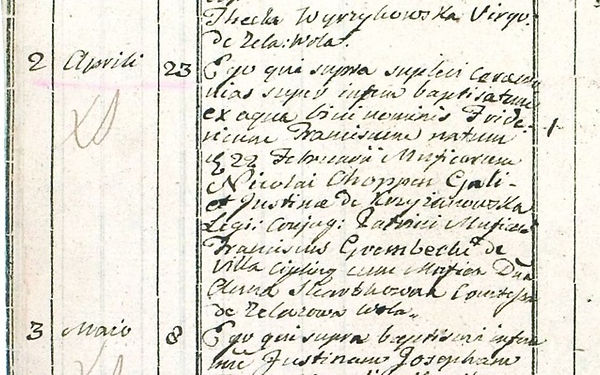 Thecla Wyrzykowska Virgo.
de Zela: Wola.
2 Aprili 23 Ego qui supra suplevi
super infem baptisatum
ex aqua bini nominis Fride-
ricum Franciscum natum
d 22 Februarii
Nicolai Choppen Gali-
et Justinæ de Krzyzanowska
Legi: Conjug: Patrini
Franciscus Grembecki de
Villa Cipliny cum
Anna Skarbkowa Comitissa
de Zelazowa Wola.
3 Maio 8 Ego qui supra baptisavi infan
Justinam Josepham